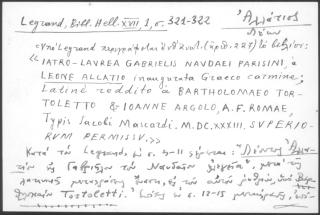 Legrand, Bibl. Hell. XVII, 1, σ. 321-322
Ἀλλάτιος
Λέων
«Ὑπὸ Legrand περιγράφεται ὑπ' ἀριθ. 227) τὸ βιβλίον:
« IATRO-LAVREA GABRIELIS NAVDAEI PARISINI, à
LEONE ALLATIO inaugurata Graeco carmine,
Latinè reddito à BARTHOLOMAEO TOR-
TOLETTO & IOANNE ARGOLO, A.F. ROMAE,
Typis Iacobi Mascardi. M.DC.XXXIII. SVPERIO-
RVM PERMISSV.»
Κατὰ τὸν Legrand, ἐν σ. 4-11
τὸν Γαβριὴλ τὸν Ναυδαῖον μετὰ τῆς
λατινικῆς μεταφράσεως
Tortoletti. ἐν σ. 12-15